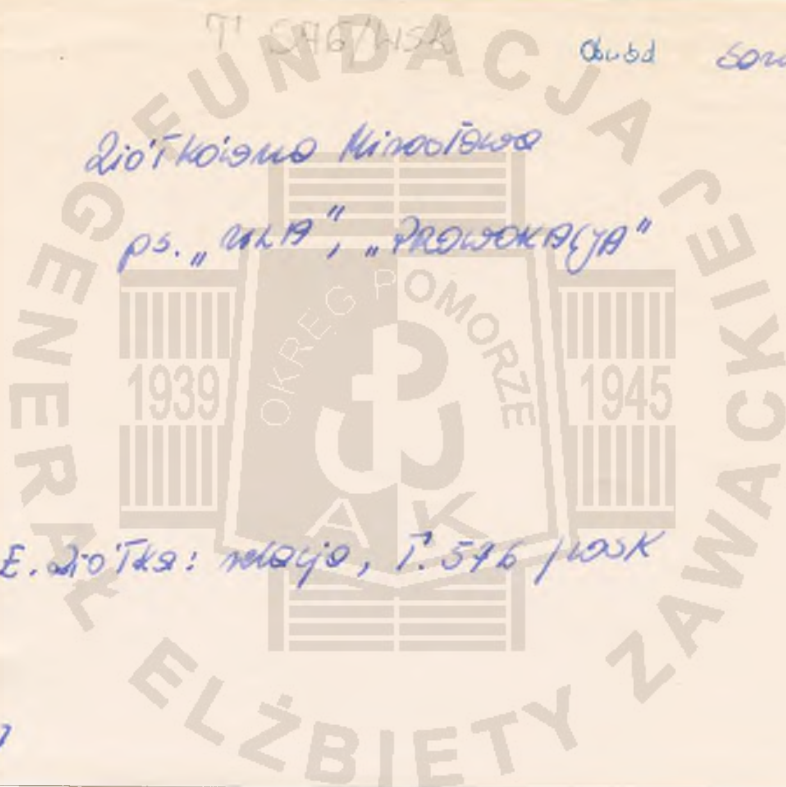 T 546/WSK
Obwód
Ziółkówna Mirosława
ps. „ ", „PROWOKACJA"
E. Ziółka: relacja, T. 546 /WSK
FUNDACJA GENERAŁ ELŻBIETY ZAWACKIEJ
OKRĘG POMORZE
1939 1945
AK